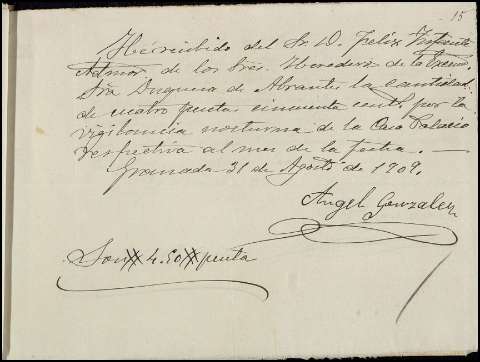 15
He recibido del Sr. D. Felix Infante
Admor. de los Sres. Herederos de la Excma.
Sra Duquesa de Abrantes la cantidad
de cuatro pesetas cincuenta cents por la
vigilancia nocturna de la Casa Palacio
respectiva al mes de la fecha. —
Granada 31 de Agosto de 1909.
Angel Gonzalez
Son # 4.50 # pesetas